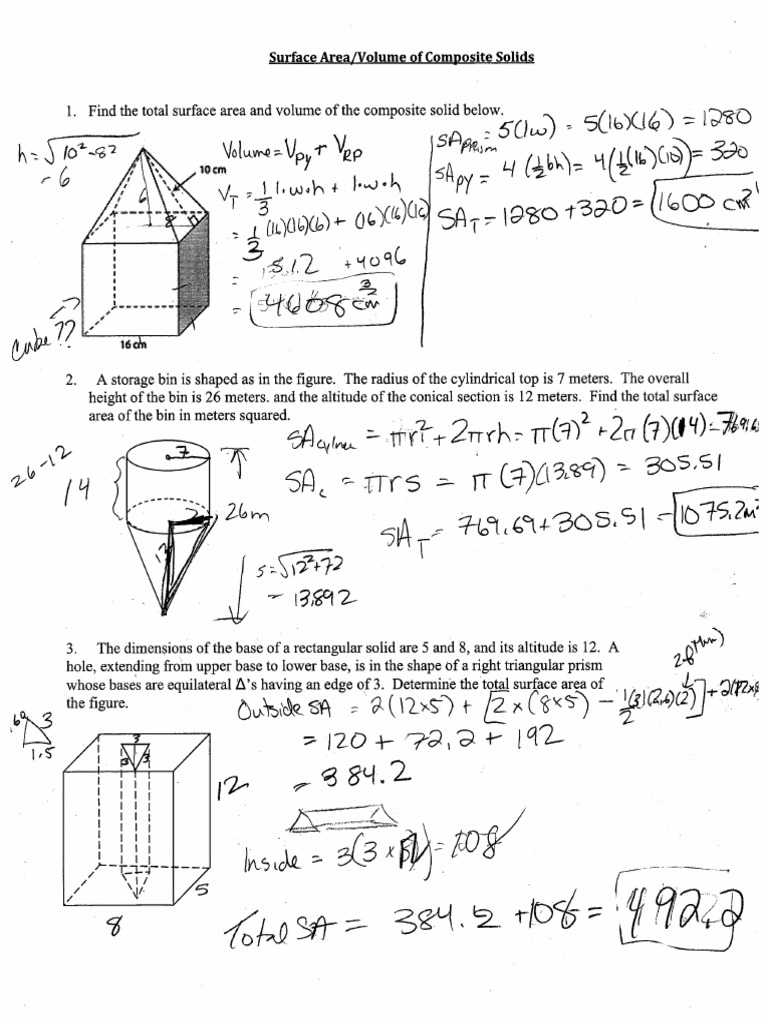 Surface Area/Volume of Composite Solids
1. Find the total surface area and volume of the composite solid below.
h = √10²-8²
= 6
10 cm
6
8
16 cm
Cube??
Volume = Vpy + VRP
VT = 1/3 l·w·h + l·w·h
= 1/3 (16)(16)(6) + (16)(16)(16)
= 512 + 4096
= 4608 cm³
SAPrism = 5(lw) = 5(16)(16) = 1280
SApy = 4(½bh) = 4(½(16)(10)) = 320
SAT = 1280 + 320 = 1600 cm²
2. A storage bin is shaped as in the figure. The radius of the cylindrical top is 7 meters. The overall
height of the bin is 26 meters. and the altitude of the conical section is 12 meters. Find the total surface
area of the bin in meters squared.
26-12
14
7
26m
7
12
s = √12²+72
= 13.892
SAcylinder = πr² + 2πrh = π(7)² + 2π(7)(14) = 769.6
SAc = πrs = π(7)(13.89) = 305.51
SAT = 769.69 + 305.51 = 1075.2m²
3. The dimensions of the base of a rectangular solid are 5 and 8, and its altitude is 12. A
hole, extending from upper base to lower base, is in the shape of a right triangular prism
whose bases are equilateral Δ's having an edge of 3. Determine the total surface area of
the figure.
3
1.5
3
3
3
12
5
8
Outside SA = 2(12x5) + [2x(8x5) - ½(3)(2.6)(2)] + 2(12x8
= 120 + 72.2 + 192
= 384.2
Inside = 3(3x12) = 108
Total SA = 384.2 + 108 = 492.2